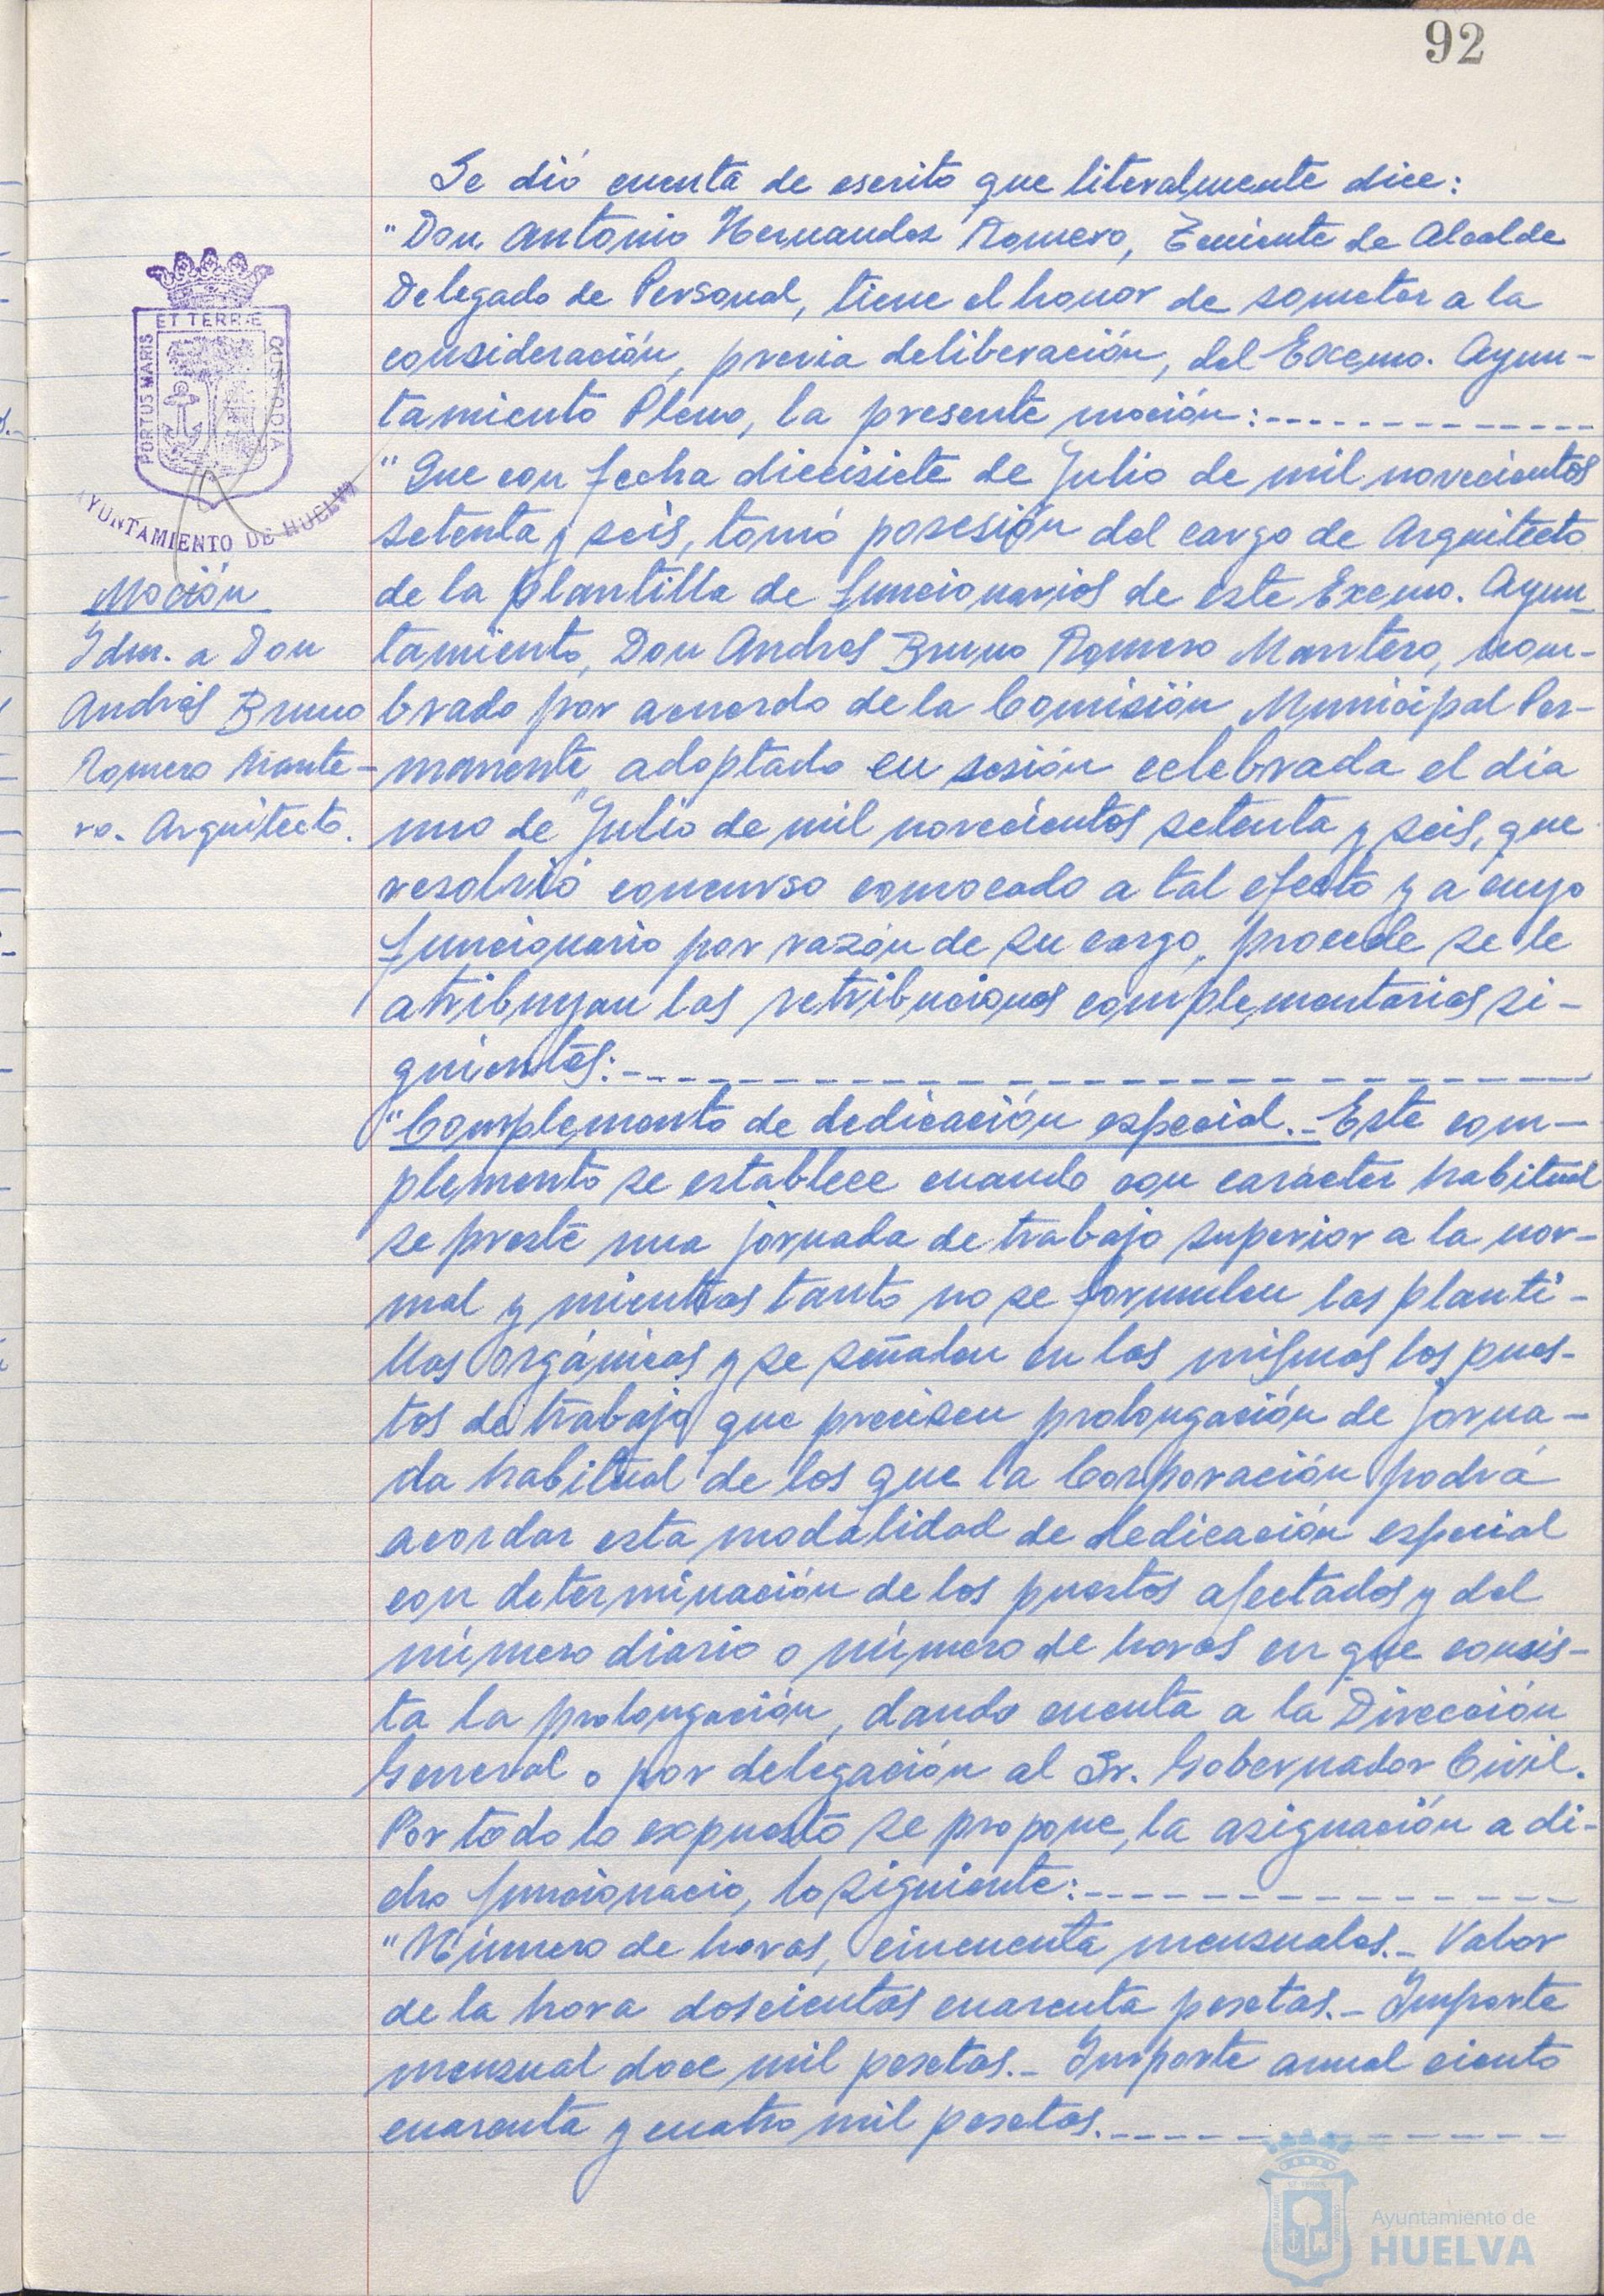 92
Se dió cuenta de escrito que literalmente dice:
"Don Antonio Hernandez Romero, Teniente de Alcalde
Delegado de Personal, tiene el honor de someter a la
consideración, previa deliberación, del Excmo. Ayun-
tamiento Pleno, la presente moción:
"Que con fecha diecisiete de Julio de mil novecientos
setenta y seis, tomó posesión del cargo de Arquitecto
de la plantilla de funcionarios de este Excmo. Ayun-
tamiento, Don Andres Bruno Romero Mantero, nom-
brado por acuerdo de la Comisión Municipal Per-
manente adoptado en sesión celebrada el día
uno de Julio de mil novecientos setenta y seis, que
resolvió concurso convocado a tal efecto y a cuyo
funcionario por razón de su cargo, procede se le
atribuyan las retribuciones complementarias si-
guientes:
"Complemento de dedicación especial.- Este com-
plemento se establece cuando con carácter habitual
se preste una jornada de trabajo superior a la nor-
mal y mientras tanto no se formulen las planti-
llas orgánicas y se señalen en las mismas los pues-
tos de trabajo que precisen prolongación de jorna-
da habitual de los que la Corporación podrá
acordar esta modalidad de dedicación especial
con determinación de los puestos afectados y del
número diario o número de horas en que consis-
ta la prolongación, dando cuenta a la Dirección
General o por delegación al Sr. Gobernador Civil.
Por todo lo expuesto se propone, la asignación a di-
cho funcionario, lo siguiente:
"Número de horas, cincuenta mensuales.- Valor
de la hora doscientas cuarenta pesetas.- Importe
mensual doce mil pesetas.- Importe anual ciento
cuarenta y cuatro mil pesetas.
PORTUS MARIS
ET TERRÆ
CUSTODIA
AYUNTAMIENTO DE HUELVA
Moción
Idm. a Don
Andrés Bruno
Romero Mante-
ro. Arquitecto.
Ayuntamiento de
HUELVA